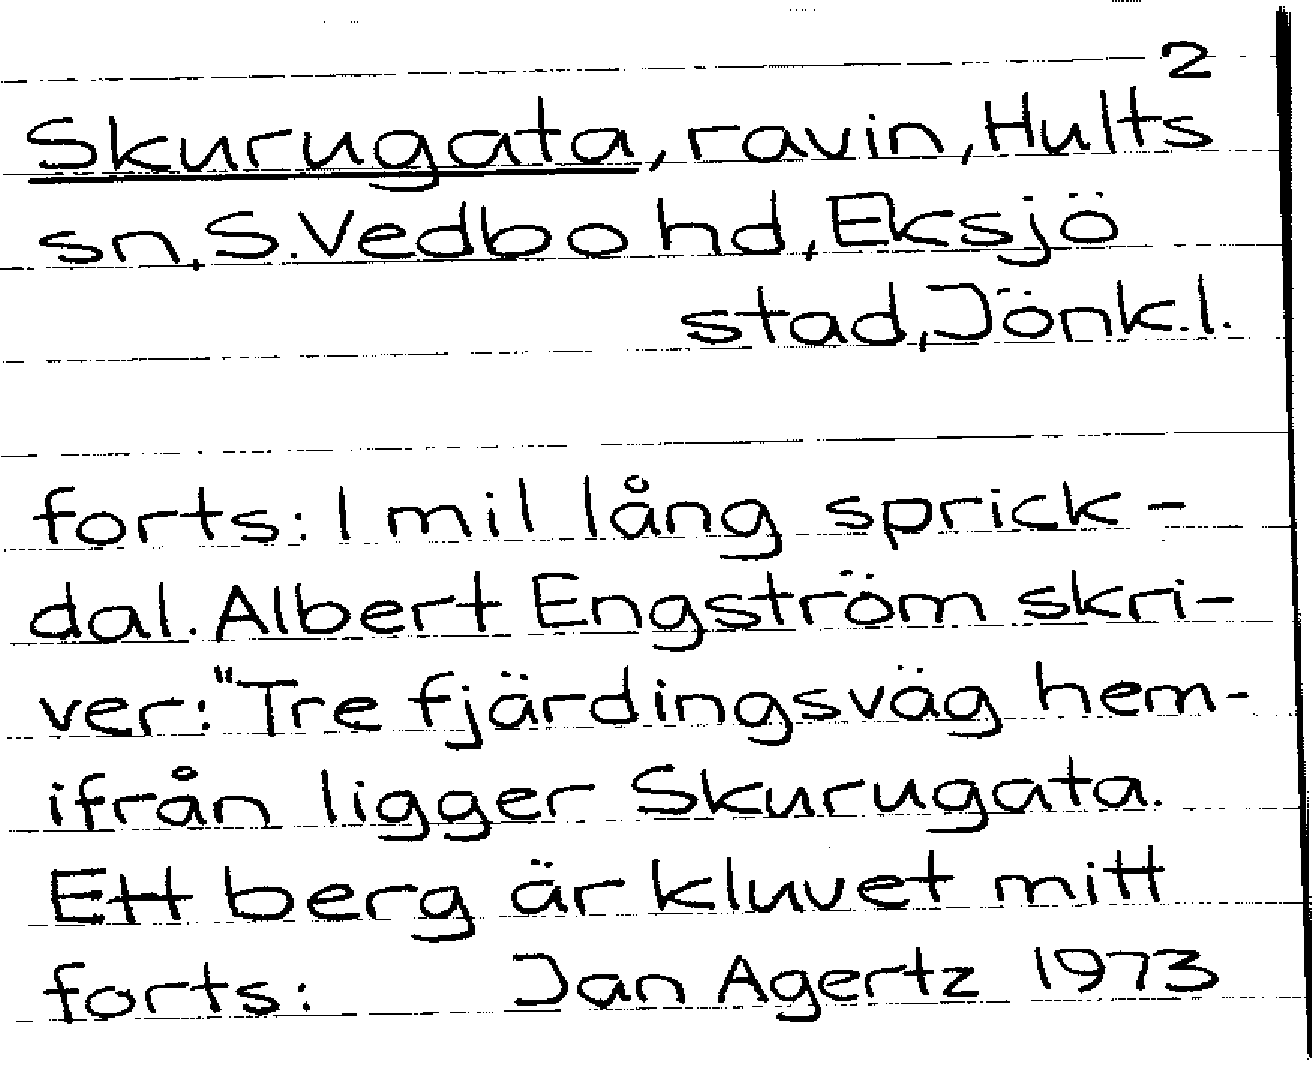 2
Skurugata, ravin, Hults
sn, S. Vedbo hd, Eksjö
stad, Jönk.l.
forts: 1 mil lång sprick-
dal. Albert Engström skri-
ver: "Tre fjärdingsväg hem-
ifrån ligger Skurugata.
Ett berg är kluvet mitt
forts: Jan Agertz 1973